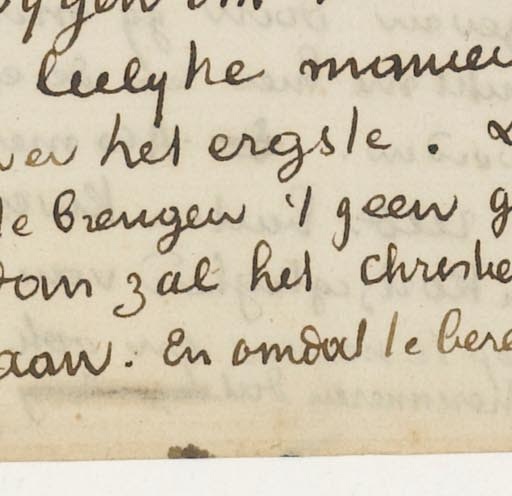 leelyke manier
het ergste.
te brengen 't geen g
dan zal het christe
aan. En omdat te bere